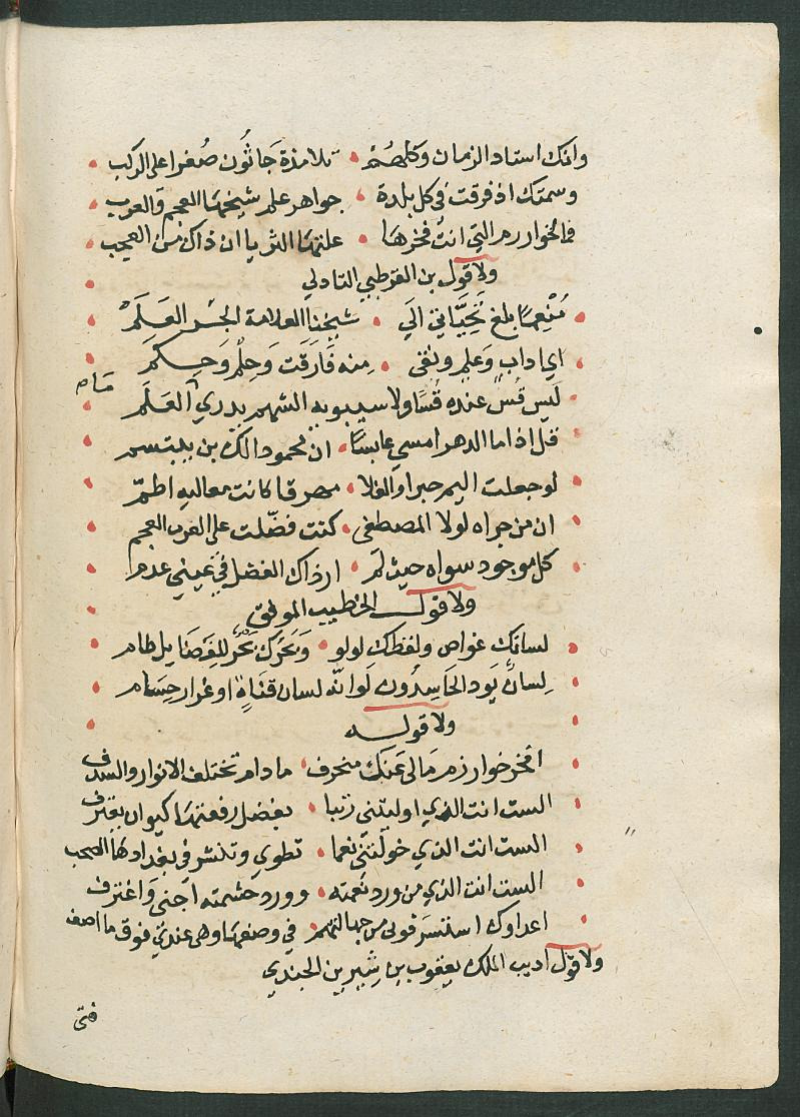 وانك استاد الزمان وكلهم تلامذة جاثون صغرا على الركب
وسمتك اذ فرقت في كل بلدة جواهر علم شيخها العجم والعرب
فالخوارزم التي انت فخرها علتها الثريا ان ذاك من العجب
ولا قول بن القرطبي التادلي
منعما بلغ تحياتي الى شيخنا العلامة الحبر العلم
اي اداب وعلم وتقى منه فارقت وحلم وحكم
ليس قس عنده قسا ولا سيبويه الشهم يدري العلم
قل اذا ما الدهر امسى عابسا ان محمود الك بن يبتسم
لو جعلت اليم حبرا والفلا مهرقا كانت معاليه اطم
ان من جراه لولا المصطفى كنت فضلت على العرب العجم
كل موجود سواه حيث لم ار ذاك الفضل في عيني عدم
ولا قول الخطيب الموفق
لسانك غواص ولفظك لولو وبحرك بحر للفضايل طام
لسان يود الحاسدون لو انه لسان قناة او غرار حسام
ولا قوله
افخر خوارزم مالي عنك منحرف ما دام تختلف الانوار والسدف
الست انت الذي اوليتني رتبا بفضل رفعتها كيوان يعترف
الست انت الذي خولتني نعما تطوي وتنشر في بغدادها الصحف
الست انت الذي من ورد نعمته وورد حشمته اجني واغترف
اعداوك استنسر قولي من جهالتهم في وصفها وهي عندي فوق ما اصف
ولا قول اديب الملك يعقوب بن شيرين الجندي
فتى